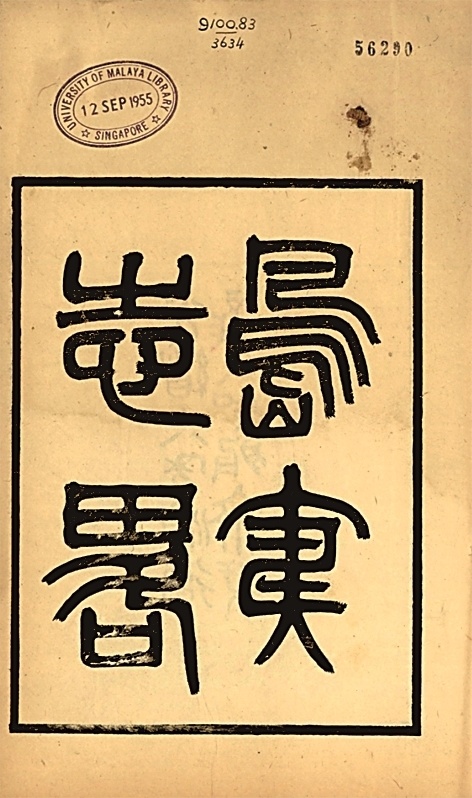 9100.83
3634
56290
UNIVERSITY OF MALAYA LIBRARY
12 SEP 1955
☆ SINGAPORE ☆
島夷
志畧